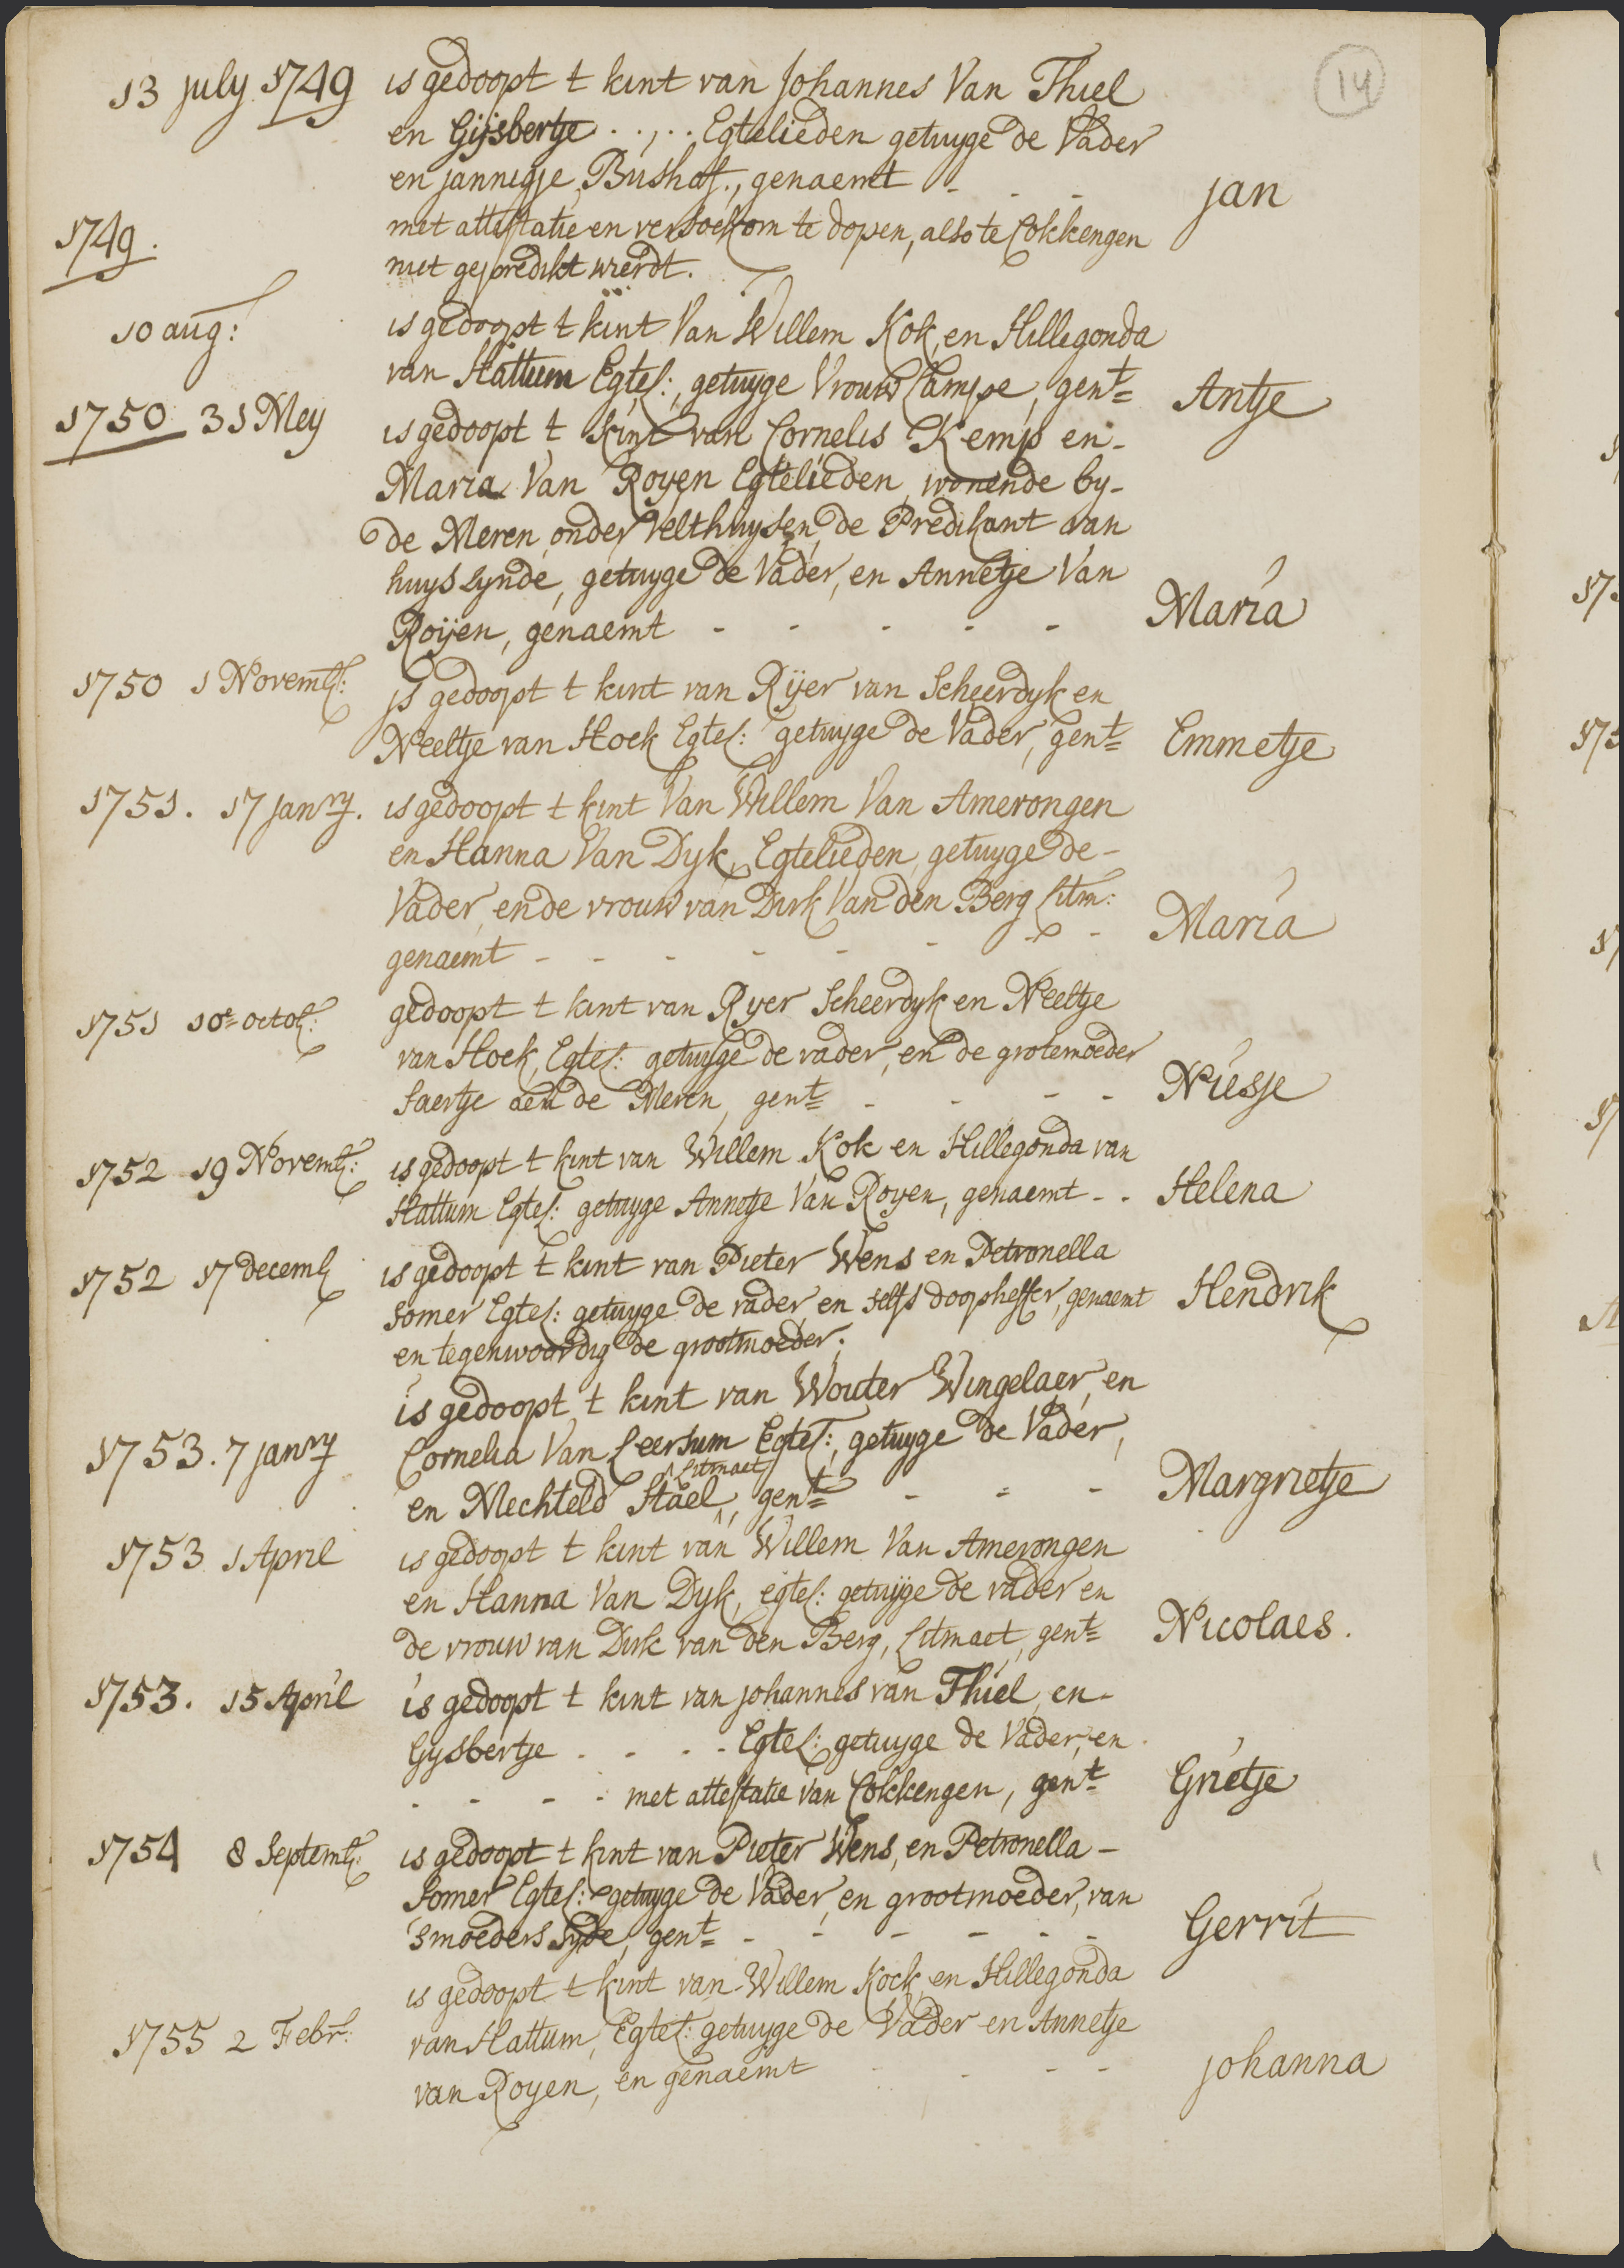 14
13 july 1749 is gedoopt t kint van Johannes Van Thiel
en Gijsbertje . . , . . Egtelieden getuyge de Vader
en jannigje Bushof, genaemt - - - jan
met attestatie en versoek om te dopen, also te Cokkengen
1749.
niet gepredikt wierdt.
10 aug: is gedoopt t kint Van Willem Kok, en Hillegonda
van Hattum Egtel:, getuyge Vrouw Campe, gent= Antje
1750 31 Mey is gedoopt t kint van Cornelis Kemp en-
Maria Van Royen Egtelieden, wonende by-
de Meren onder Velthuysen, de Predikant van
huys synde, getuyge de Vader, en Annetje Van
Roijen, genaemt - - - - - Maria
1750 1 Novemb: is gedoopt t kint van Rijer van Scheerdyk en
Neeltje van Hoek Egtel: getuyge de Vader, gent= Emmetje
1751. 17 janry. is gedoopt t kint Van Willem Van Amerongen
en Hanna Van Dyk, Egtelieden, getuyge de-
Vader, en de vrouw van Dirk Van den Berg Litm:
genaemt - - - - - - - Maria
1751 10e octob: gedoopt t kint van Ryer Scheerdyk en Neeltje
van Hoek, Egtel: getuyge de vader, en de grotemoeder
Saertje aen de Meren, gent= - - - - Niesje
1752 19 Novemb: is gedoopt t kint van Willem Kok en Hillegonda van
Hattum Egtel: getuyge Annetje Van Royen, genaemt - . Helena
1752 17 decemb is gedoopt t kint van Pieter Wens en Petronella
Somer Egtel: getuyge de vader en selfs doopheffer, genaemt Hendrik
en tegenwoordig de grootmoeder.
is gedoopt t kint van Wouter Wingelaer, en
1753. 7 janry Cornelia Van Leersum Egtel:, getuyge de Vader,
Litmaet
en Mechteld Stael, gent= - = - Margrietje
1753 1 April is gedoopt t kint van Willem Van Amerongen
en Hanna Van Dyk, egtel: getuyge de vader en
de vrouw van Dirk van den Berg, Litmaet, gent= Nicolaes.
1753. 15 April is gedoopt t kint van johannes van Thiel, en-
Gysbertje . . . - Egtel: getuyge de Vader, en
. - - - met attestatie van Cokkengen, gent= Grietje
1754 8 Septemb: is gedoopt t kint van Pieter Wens, en Petronella -
Somer Egtel: getuyge de Vader, en grootmoeder, van
smoeders syde, gent= - - - - - - Gerrit
is gedoopt t kint van Willem Kock, en Hillegonda
1755 2 Febr: van Hattum, Egtel: getuyge de Vader en Annetje
van Royen, en genaemt - - - - johanna